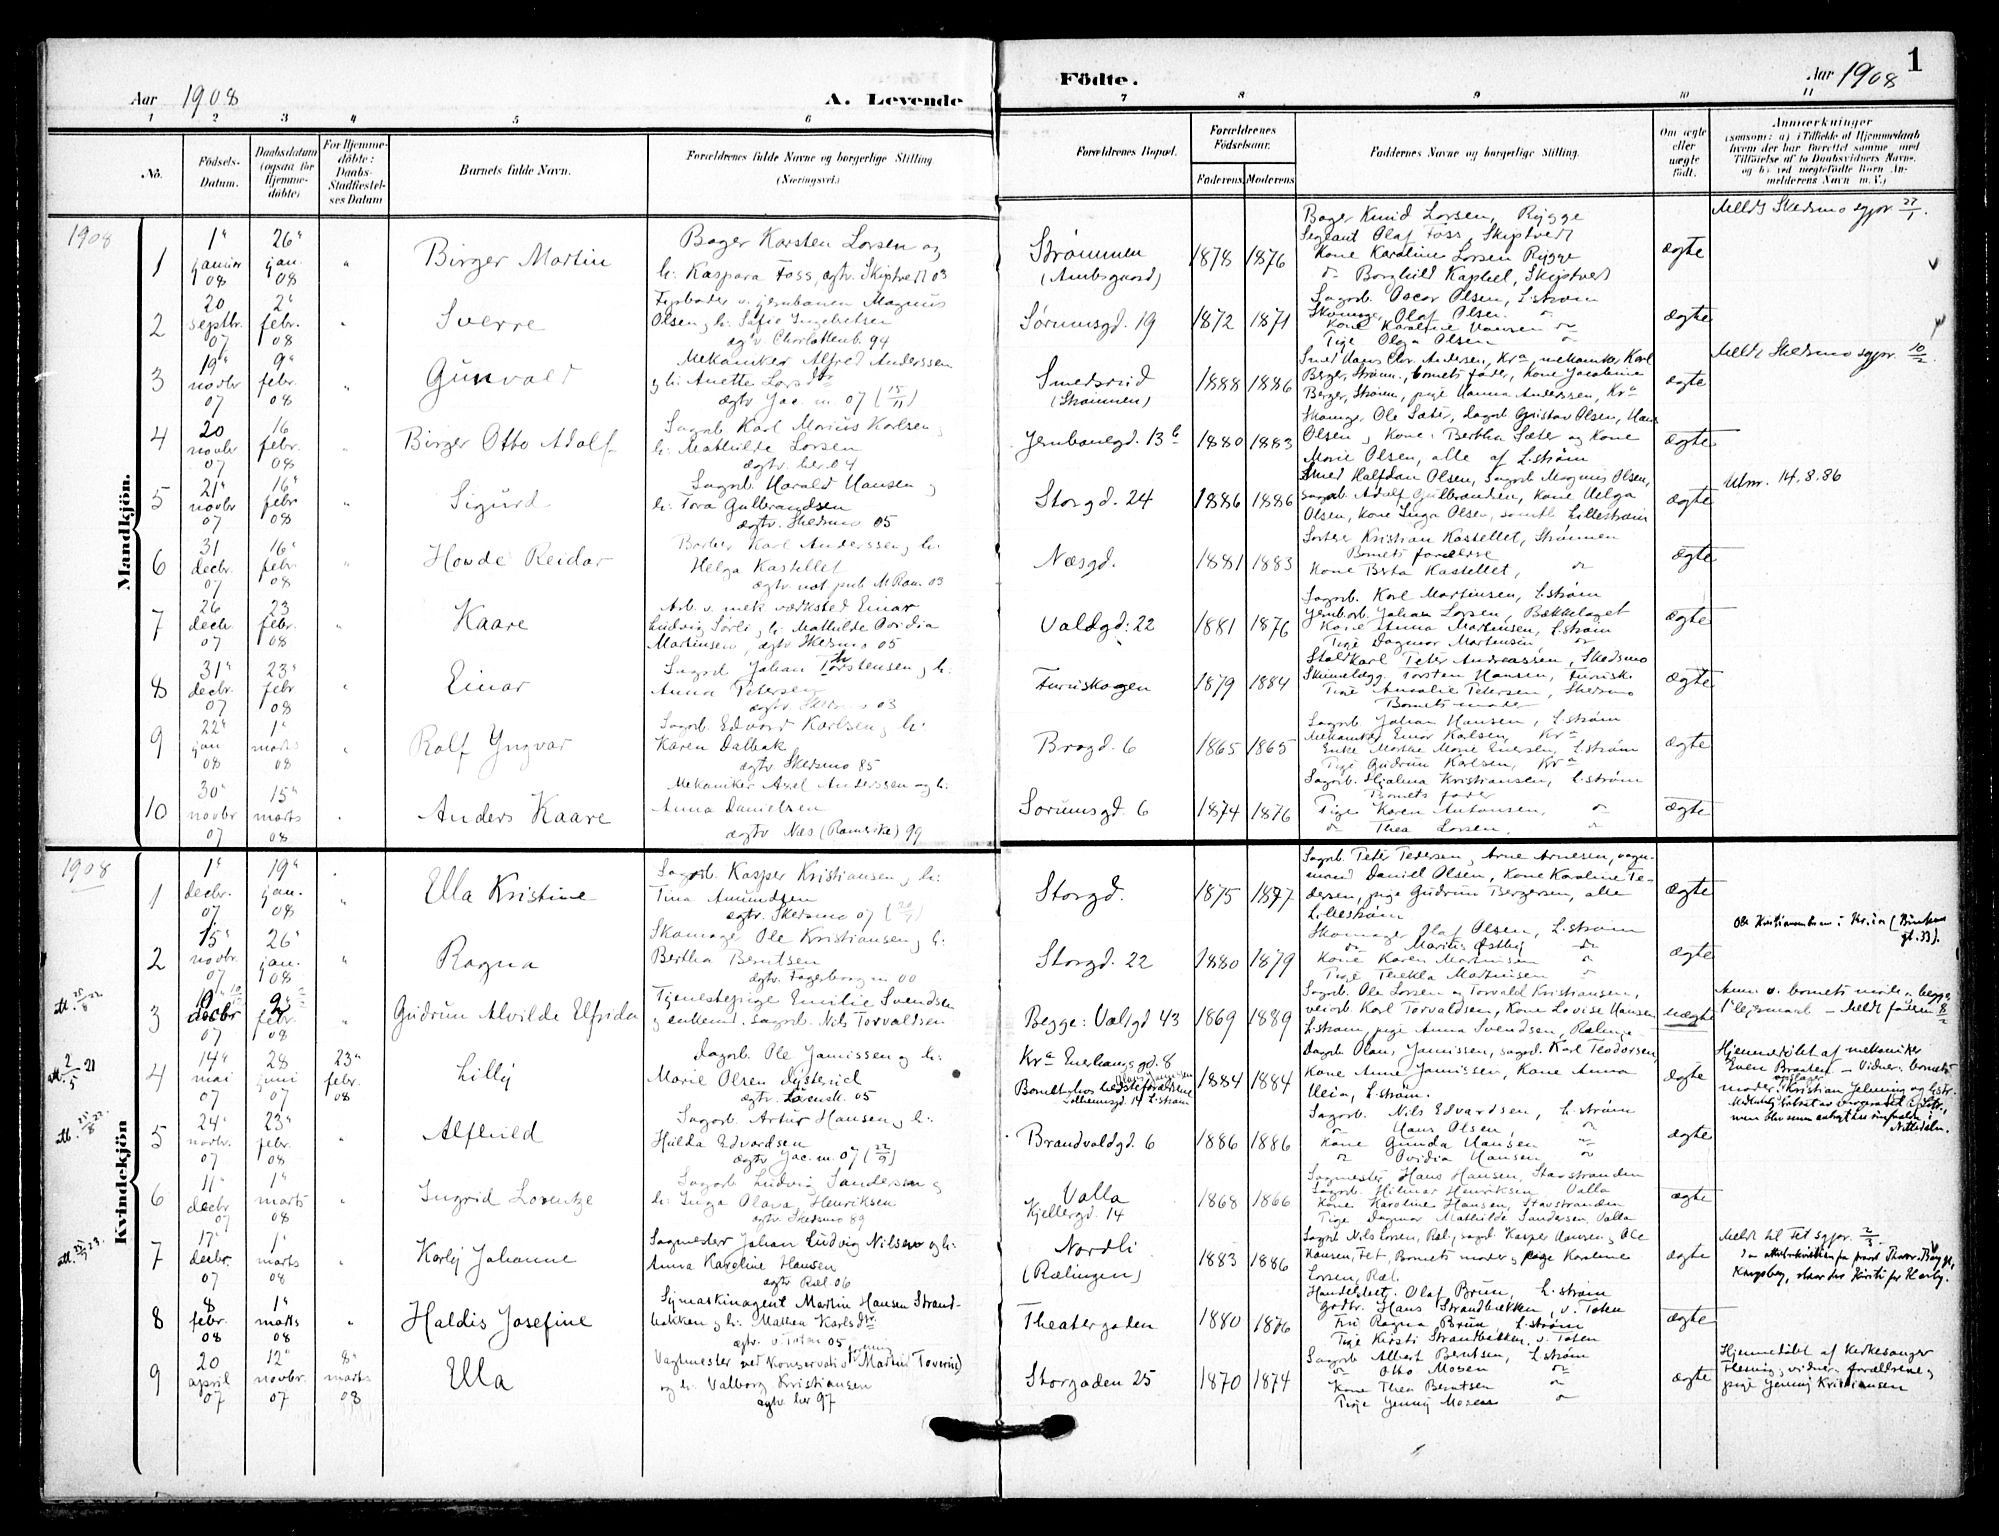 1
Aar 1908
A. Levende
Födte.
Aar 1908
1 2 3 4 5 6 7 8 9 10 11
No.
Födsels-Datum.
Daabsdatum (ogsaa for Hjemmedöbte)
For Hjemmedöbte: Daabs-Stadfæstelses Datum
Barnets fulde Navn.
Forældrenes fulde Navne og borgerlige Stilling (Næringsvei)
Forældrenes Bopæl.
Forældrenes Födselsaar.
Faderens Moderens
Faddernes Navne og borgerlige Stilling.
Om ægte eller uægte födt.
Anmærkninger
Mandkjön.
1908
1
1" januar 08
26" jan. 08
Birger Martin
Bager Karsten Larsen og
h: Kaspara Foss, ægtv. Skiptvedt 03
Strømmen
(Ambsgaard)
1878 1876
Bager Knud Larsen, Rygge
Sergeant Olaf Foss, Skiptvedt
Kone Karoline Larsen Rygge
do Borghild Kaphel, Skiptved
ægte
Meldt Skedsmo sgpr. 27/1.
2
20 septbr. 07
2" febr. 08
Sverre
Fyrbøder v. jernbanen Magnus
Olsen, h: Sofie Ingebretsen
ægtv. Charlottenb. 94
Sørumsgd. 19
1872 1871
Sagarb. Oscar Olsen, L.strøm
Skomag. Olaf Olsen do
Kone Karoline Hansen do
Pige Olga Olsen do
ægte
3
19" novbr 07
9" febr. 08
Gunvald
Mekaniker Alfred Anderssen
og h: Anette Larsdtr
ægtv Jac. m. 07 (15/11)
Smedsrud
(Strømmen)
1888 1886
Smed Hans Chr. Andersen, Kra, mekaniker Karl
Berger, Strøm., barnets fader, kone Jacobine
Berger, Strøm., pige Hanna Anderssen, Kra
ægte
Meldt Skedsmo sgpr. 10/2.
4
20 novbr 07
16 febr. 08
Birger Otto Adolf
Sagarb. Karl Marius Karlsen,
h: Mathilde Larsen
ægtv. her 04
Jernbanegd. 13 b
1880 1883
Skomag. Ole Sæter, Sagarb Gustav Olsen, Hans
Olsen, Kone: Bertha Sæter og Kone
Marie Olsen, alle af L.strøm
ægte
5
21" novbr 07
16" febr 08
Sigurd
Sagarb. Harald Hansen,
h: Tora Gulbrandsen
ægtv. Skedsmo 05
Storgd. 24
1886 1886
Smed Halfdan Olsen, Sagarb Magnus Olsen,
sagarb. Adolf Gulbrandsen, Kone Helga
Olsen, Kone Inga Olsen, samtl. Lillestrøm
ægte
Utm. 14.8.86
6
31 decbr. 07
16" febr. 08
Hovde Reidar
Barber Karl Anderssen, h:
Helga Kastellet
ægtv not pub. N. Rom. 03
Næsgd.
1881 1883
Sorterer Kristian Kastellet, Strømmen
Barnets forældre
Kone Berta Kastellet, do
ægte
7
26 decbr. 07
23 febr. 08
Kaare
Arb. v. mek værksted Einar
Ludvig Sørli, h: Mathilde Ovidia
Martinsen, ægtv Skedsmo 05
Valdgd: 22
1881 1876
Sagarb. Karl Martinsen, L.strøm
Jernarb. Johan Larsen, Bækkelaget
Kone Anna Martinsen, L.strøm
Pige Dagmar Martinsen do
ægte
8
31" decbr. 07
23" febr. 08
Einar
Sagarb Johan Thorstensen, h:
Anna Petersen
ægtv. Skedsmo 03
Furuskogen
1879 1884
Staldkarl Peter Andreassen, Skedsmo
Torsten Hansen,
Pige Amalie Petersen, Skedsmo
Barnets moder
ægte
9
22" jan 08
1" marts 08
Ralf Yngvar
Sagarb. Edvard Karlsen, h:
Karen Dalbak
ægtv Skedsmo 85
Brogd. 6
1865 1865
Sagarb. Johan Hansen, L.strøm
Mekaniker Einar Karlsen, Kra
Enke Marthe Marie Enersen, L.strøm
Pige Gudrun Karlsen, Kra
ægte
10
30" novbr 07
15" marts 08
Anders Kaare
Mekaniker Axel Anderssen og h:
Anna Danielsen
ægtv Næs (Romerike) 99
Sørumsgd. 6
1874 1876
Sagarb. Hjalmar Kristiansen, L.strøm
Barnets fader
Pige Karen Antonsen, do
do Thea Larsen. do
ægte
Kvindekjön
1908
1
1" decbr. 07
19" jan. 08
Ella Kristine
Sagarb. Kasper Kristiansen, h:
Tina Amundsen
ægtv. Skedsmo 07
Storgd.
1875 1877
Sagarb. Peter Pedersen, Arne Arnesen, vognmand
Daniel Olsen, Kone Karoline Pedersen,
pige Gudrun Bergersen, alle
Lillestrøm
ægte
2
15" novbr. 07
26" jan. 08
Ragna
Skomag. Ole Kristiansen, h:
Bertha Berntsen
ægtv. Fagerborg m 00
Storgd. 22
1880 1879
Skomager Olaf Olsen, L.strøm
do Marius Østby do
Kone Karen Martinsen do
Pige Thekla Martinsen do
ægte
3
decbr 07
9" febr. 08
Gudrun Alvilde Elfrida
Tjenestepige Emilie Svendsen
og enkemd. sagarb. Nils Torvaldsen
Begge: Valgd 43
1869 1889
Sagarb. Ole Larsen og Torvald Kristiansen,
Karl Torvaldsen, Kone Lovise Hansen
L.strøm, pige Anna Svendsen, Rælingen
uægte
Anm. v. barnets mode, begges
1ste leiermaal – Meldt faderen 8/2
4
14" mai 07
28 juni 07
23" febr. 08
Lilly
Dagarb. Ole Jamissen og h:
Marie Olsen Nysterud
ægtv. Lørensk. 05
Kra Enerhaugsgd. 8
Barnet hos bedsteforældrene
14 L.strøm
1884 1884
Dagarb Olaus Jamissen, sagarb. Karl Teodorsen,
Kone Anne Jamissen, Kone Anna
Heia, L.strøm.
ægte
Hjemmedöbt af mekaniker
Even Braaten – Vidner: barnets
moder, Kristian Jelming
5
24" novbr. 07
23" febr. 08
Alfhild
Sagarb. Artur Hansen, h:
Hulda Edvardsen
ægtv Jac. m. 07 (22/9)
Brandvaldgd. 6
1886 1886
Sagarb. Nils Edvardsen, L.strøm
do Hans Olsen, do
Kone Gunda Hansen do
do Ovidia Hansen do
ægte
6
11" decbr 07
1" marts 08
Ingrid Lorentze
Sagarb Ludvig Sandersen og
h: Inga Olava Henriksen
ægtv. Skedsmo 89
Valla
Kjellergd. 14
1868 1866
Sagmester Hans Hansen, Stavstranden
Sagarb. Hilmar Henriksen Valla
Kone Karoline Hansen, Stavstranden
Pige Dagmar Mathilde Sandersen, Valla
ægte
7
17" decbr. 07
1" marts 08
Karly Johanne
Sagmester Johan Ludvig Nilsen og h:
Anna Karoline Hansen
ægtv Ræl. 06
Nordli
(Rælingen)
1883 1886
Sagarb. Nils Larsen, Ræl., sagarb Kasper Hansen, Ole
Hansen, Fet, Barnets moder, pige Karoline
Larsen, Ræl.
ægte
Meldt til Fet sgpr. 2/3.
8
8 febr. 08
1" marts 08
Haldis Josefine
Symaskinagent Martin Hansen Strandbakken
og h: Mathea Karlsdtr
ægtv. V. Toten 05
Theatergaden
1880 1876
Handelsbetj. Olaf Brun, L.strøm
Grdbr. Hans Strandbakken, V. Toten
Fru Ragna Brun, L.strøm
Pige Kirsti Strandbakken V. Toten
ægte
9
20 april 07
12" novbr. 07
8" marts 08
Ella
Vagtmester ved Martin Toverud
og h: Valborg Kristiansen
ægtv her 97
Storgaden 25
1870 1874
Sagarb Albert Berntsen, L.strøm
do Otto Mosen do
Kone Thea Berntsen do
Pige Jenny Mosen do
ægte
Hjemmedöbt af Kirkesanger
Fleming, vidner: forældrene,
pige Jenny Kristiansen